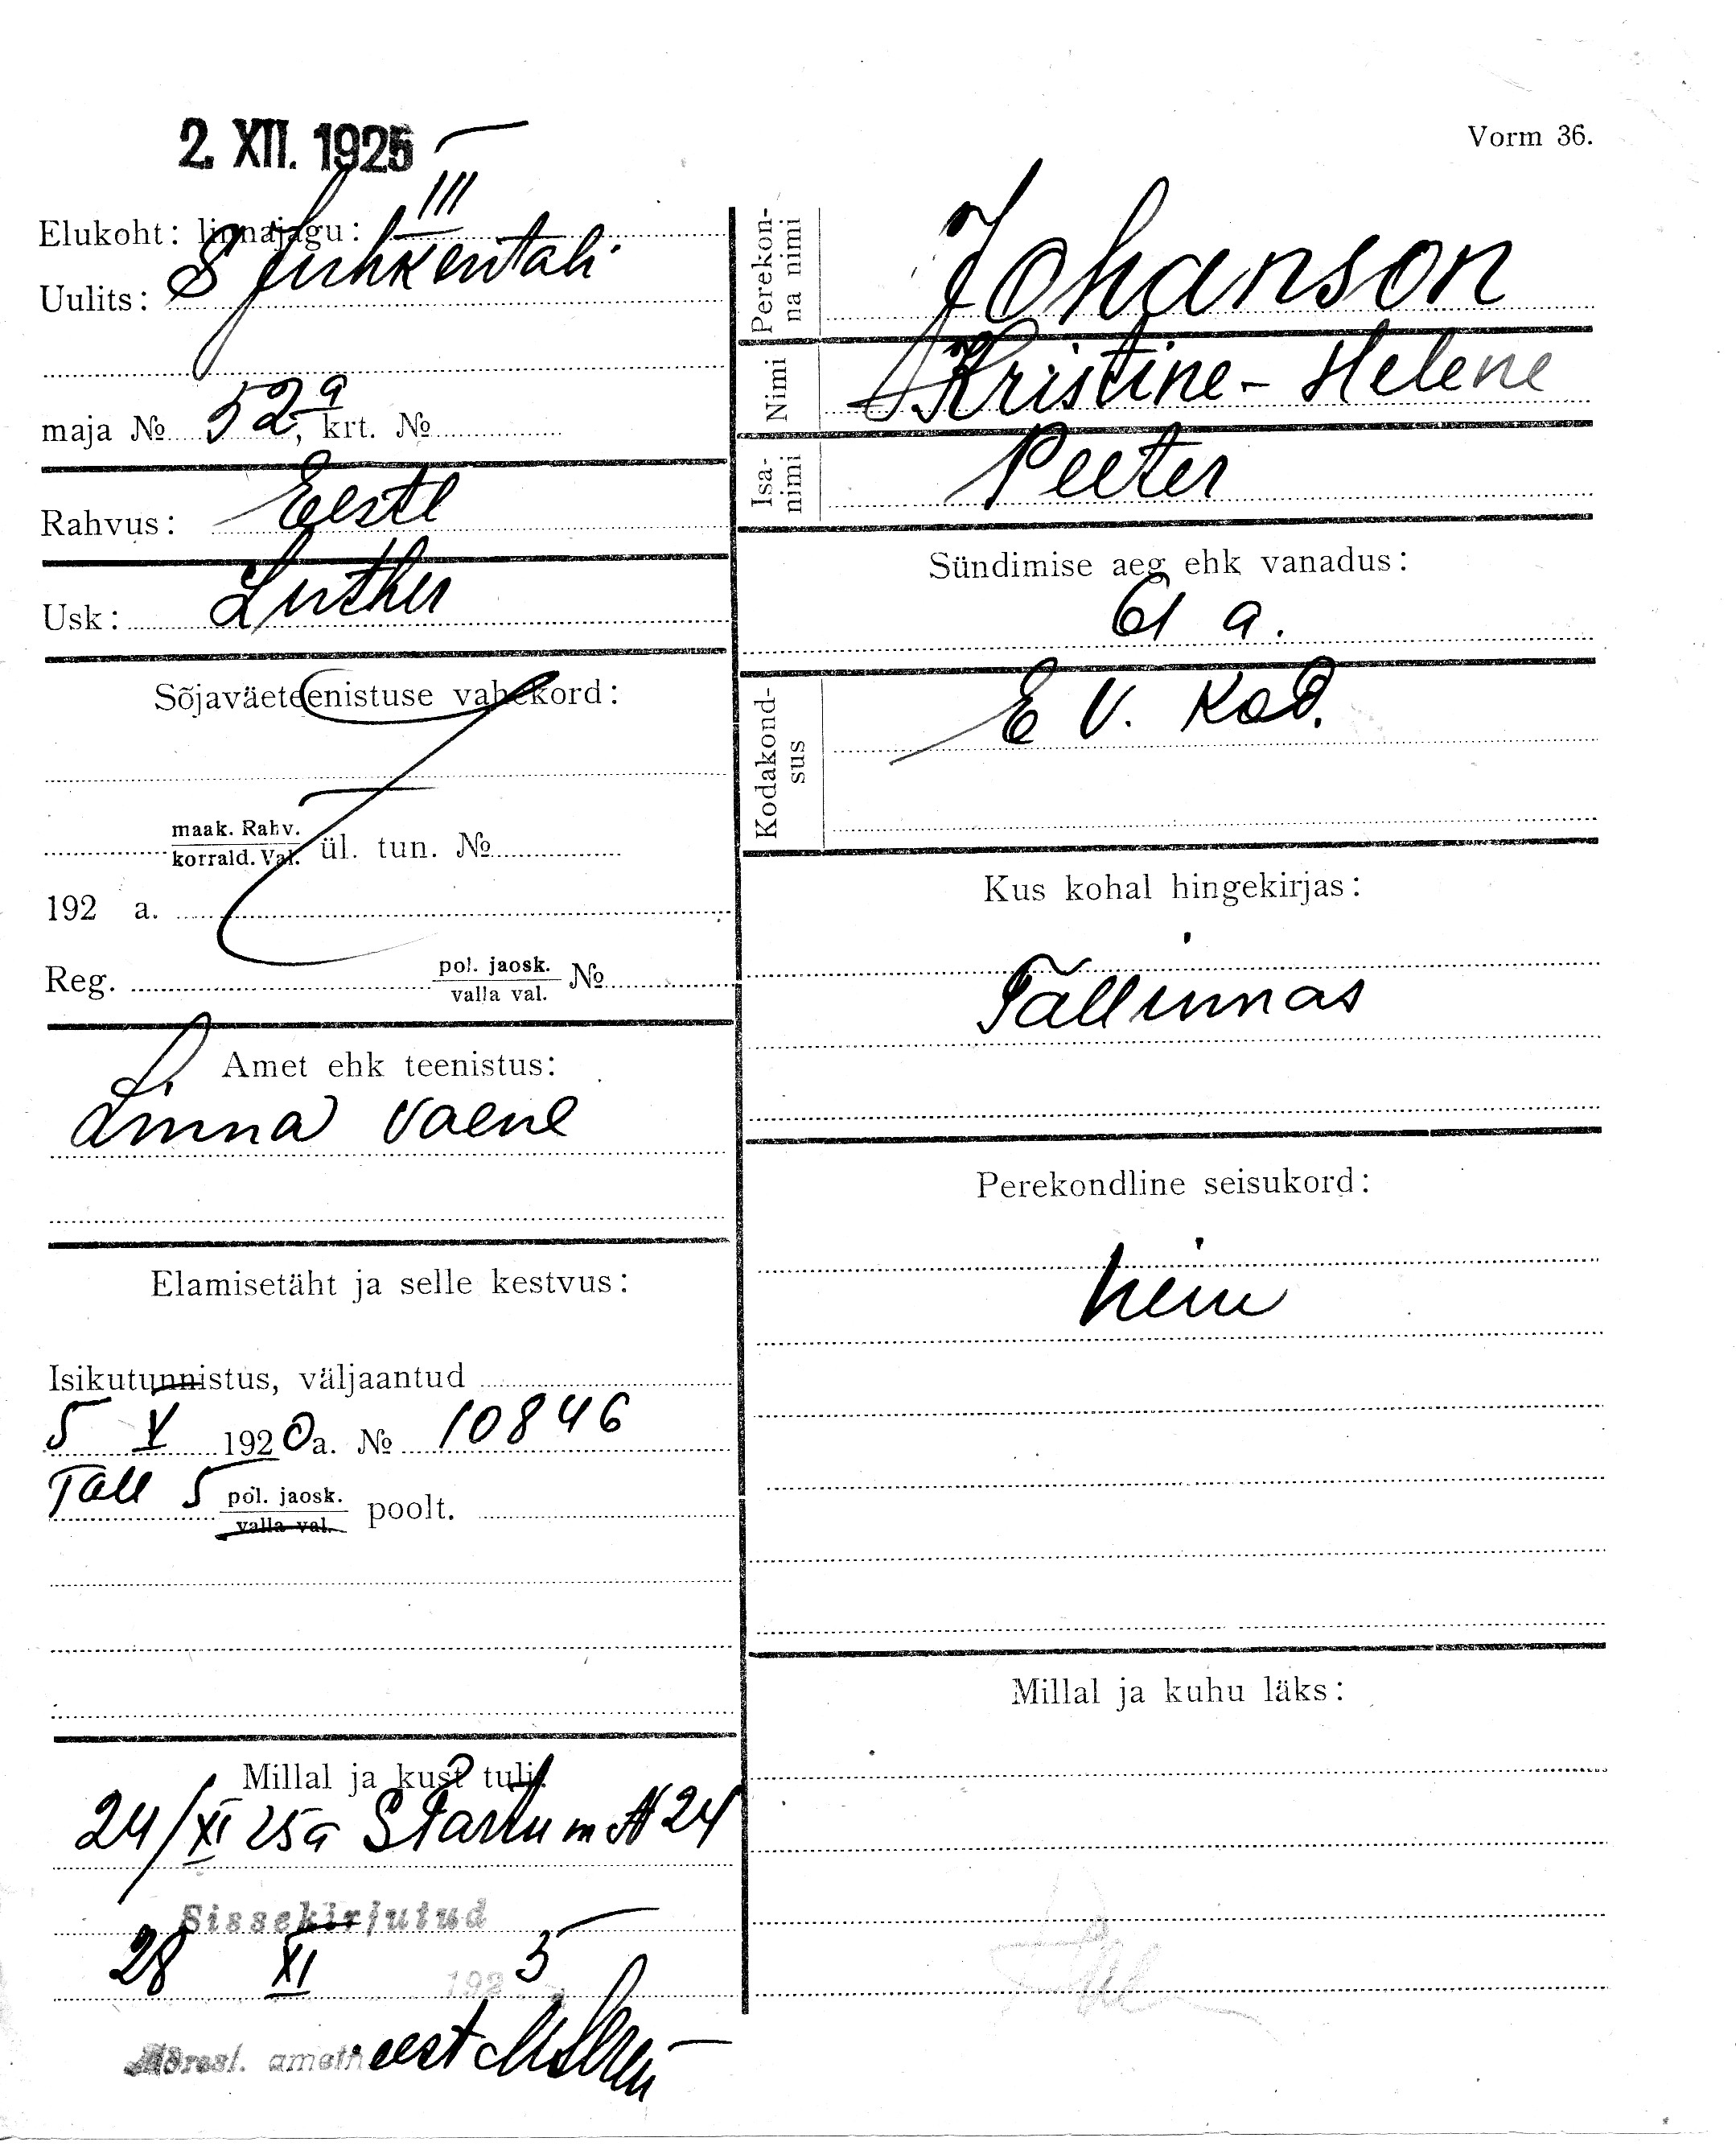 2. XII. 1925
Vorm 36.
Elukoht: linnajagu: III
Uulits: S Juhkentali
maja № 52a, krt. №
Rahvus: Eesti
Usk: Luther
Sõjaväeteenistuse vahekord:
maak. Rahv.
korrald. Val. ül. tun. №
192 a.
Reg. pol. jaosk.
valla val. №
Amet ehk teenistus:
Linna vaene
Elamisetäht ja selle kestvus:
Isikutunnistus, väljaantud
5 V 1920 a. № 10846
Tall 5 pol. jaosk.
valla val. poolt.
Millal ja kust tuli:
24/XI 25 a S Tartu m № 24
Sissekirjutud
28 XI 192 5
Adresl. ametn eest
Perekon-
na nimi
Johanson
Nimi
Kristine-Helene
Isa-
nimi
Peeter
Sündimise aeg ehk vanadus:
61 a.
Kodakond-
sus
E V. Kod.
Kus kohal hingekirjas:
Tallinnas
Perekondline seisukord:
Millal ja kuhu läks: